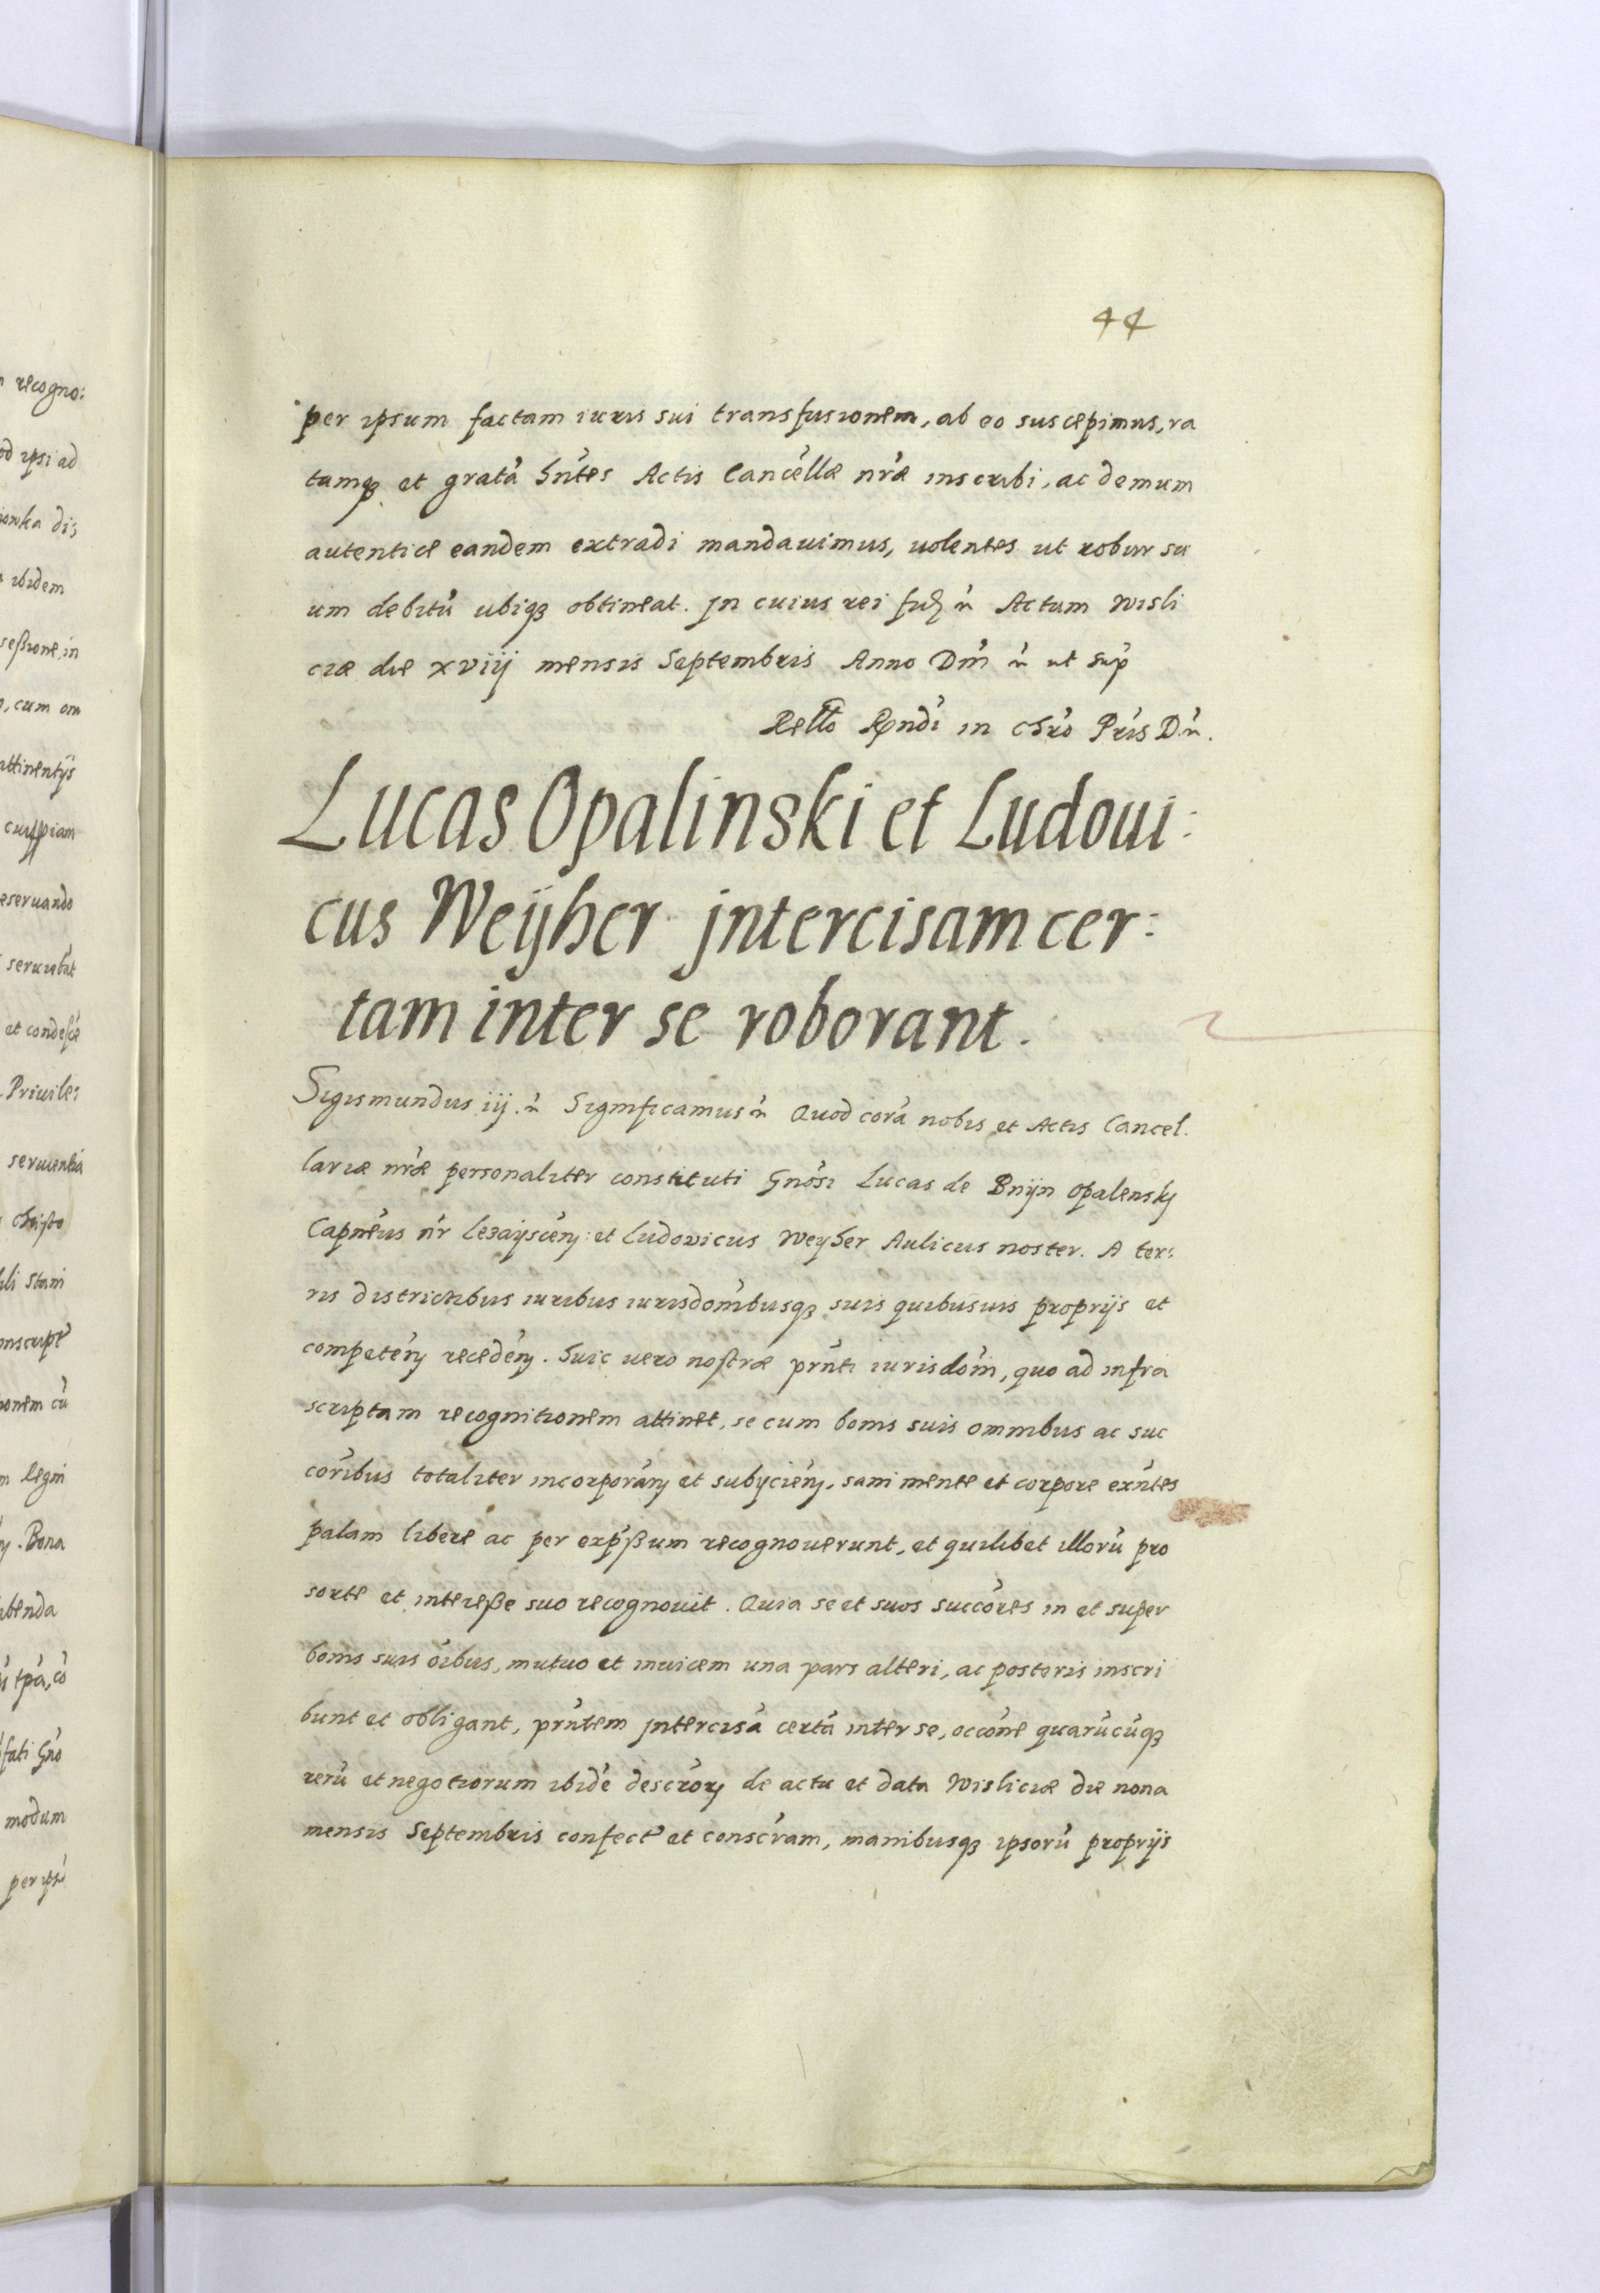 44
per ipsum factam iuris sui transfusionem, ab eo suscepimus, ra
tamq3 et gratã hñtes Actis Cancellæ nræ inscribi, ac demum
autentice eandem extradi mandauimus, uolentes ut robur su
um debitũ ubiq3 obtineat. Jn cuius rei Actum Wisli
ciæ die xviij mensis Septembris Anno Dni ut sup
Rello Rndi in Chro Pris D.
Lucas Opalinski et Ludoui:
cus Weÿher jntercisam cer:
tam inter se roborant.
Sigismundus iij. Significamus Quod corã nobis et Actis Cancel.
lariæ nræ personaliter constituti Gnosi Lucas de Bnijn Opalensky
Capneus nr Lezayscen: et Ludovicus Weyher Aulicus noster. A ter:
ris districtibus iuribus iurisdombusq3 suis quibusuis proprijs et
competen recedен. Huic uero nostræ prnti iurisdoni, quo ad infra
scriptam recognitionem attinet, se cum bonis suis omnibus ac suc
coribus totaliter incorporan et subijcien, sani mente et corpore exñtes
palam libere ac per expßum recognouerunt, et quilibet illorũ pro
sorte et intereße suo recognouit. Quia se et suos succores in et super
bonis suis oibus, mutuo et inuicem una pars alteri, ac posteris inscri
bunt et obligant, prñtem jntercisã certã inter se, occone quarũcũq3
rerũ et negotiorum ibidẽ descror de actu et data Wisliciæ die nona
mensis Septembris confect et conscram, manibusq3 ipsorũ proprijs
recogno:
ipsi ad
dis
ibidem
seßione in
cum om
attinentijs
cuippiam
eseruando
seruiebat
et condesce
Priuile:
seruientia
Christo
stani
onem cũ
legin
Bona
benda
fati Gno
modum
per ipsũ